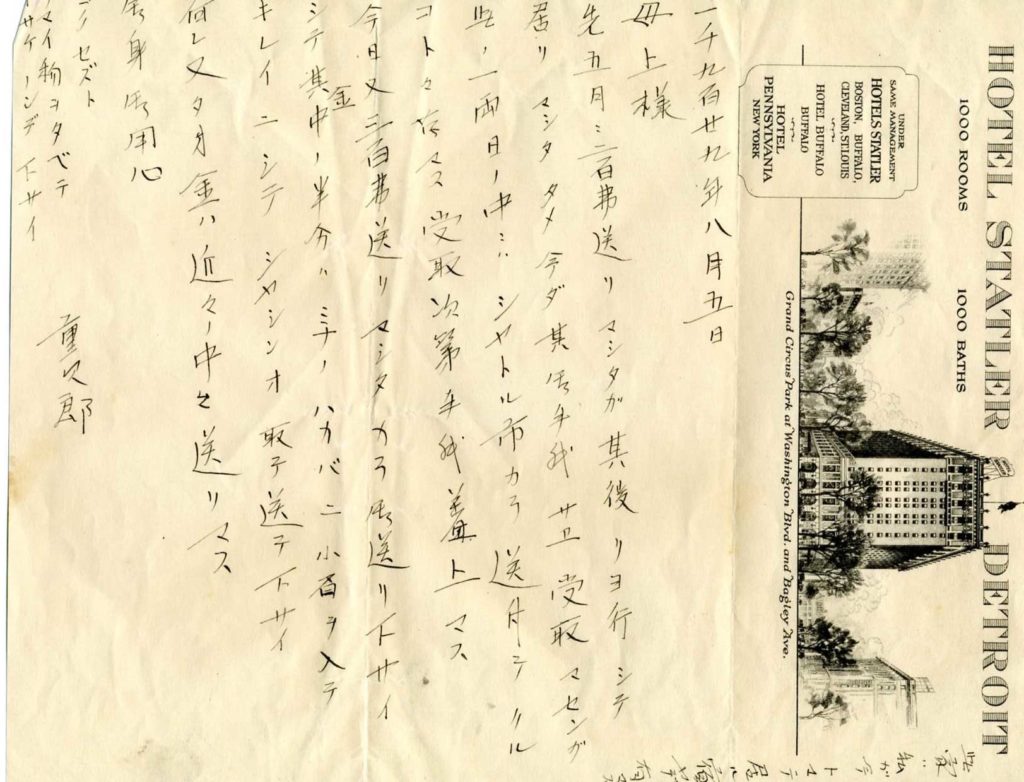 HOTEL STATLER DETROIT
1000 ROOMS 1000 BATHS
UNDER
SAME MANAGEMENT
HOTELS STATLER
BOSTON, BUFFALO,
CLEVELAND, ST.LOUIS
HOTEL BUFFALO
BUFFALO
HOTEL
PENNSYLVANIA
NEW YORK
Grand Circus Park at Washington Blvd. and Bagley Ave.
此家ハ私ガ今
トマテ
居ル宿ヤデ
有マス
一千九百廿九年八月五日
母上様
先五月ニ二百弗送リマシタガ其後リヨ行シテ
居リマシタタメ今ダ其御手紙 受取マセンガ
此ノ一両日ノ中ニハシヤトル市カラ送付テクル
コトヽ存マス受取次第手紙差上マス
今日又三百弗送リマシタカラ御送リ下サイ
シテ其金中ノ半分ハミナノハカバニ小石ヲ入テ
キレイニシテシヤシンオ取テ送テ下サイ
何レ又タオ金ハ近々ノ中ニ送リマス
御身御用心
セズト
マイ物ヲタベテ
サケノンデ下サイ
重次郎